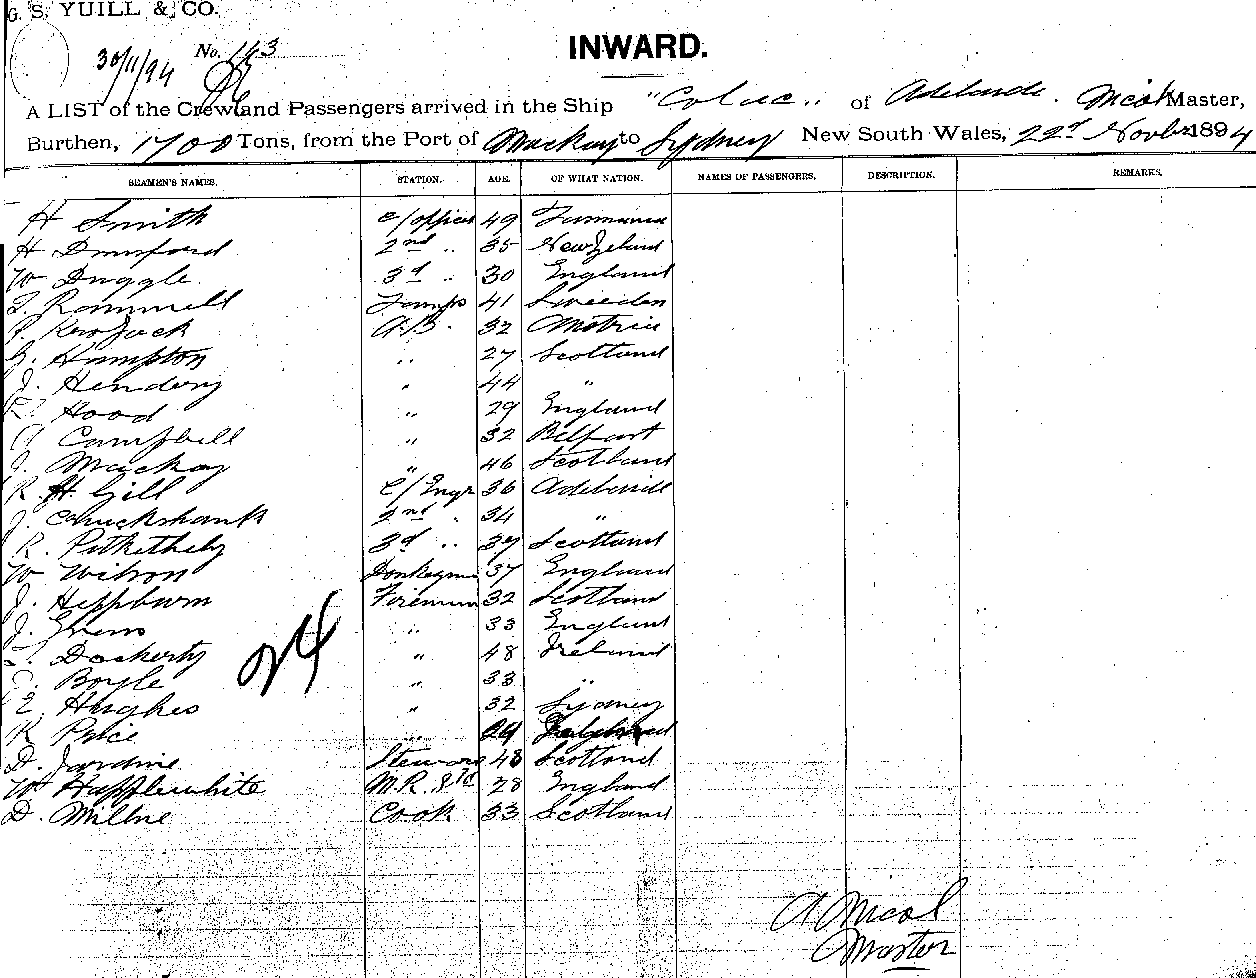 G. S. YUILL & CO.
30/11/94 No. 143
INWARD.
A LIST of the Crew and Passengers arrived in the Ship "Colac" of Adelaide. Nicol Master,
Burthen, 1700 Tons, from the Port of Mackay to Sydney New South Wales, 22d Novbr 1894
SEAMEN'S NAMES. STATION. AGE. OF WHAT NATION. NAMES OF PASSENGERS. DESCRIPTION. REMARKS.
H Smith c/officer 49 Tasmania
H Dunsford 2nd " 35 New Zeland
W Duggle 3d " 30 England
Rammell Lamps 41 Sweeden
A.B. 32 Austria
G. Hampton " 27 Scotland
J. Hendery " 44 "
Hood " 29 England
A Campbell " 32 Belfast
J. Mackay " 46 Scotland
R. H. Gill C/Engr 36 Adelaide
J. Chuckshank 2nd " 34 "
R. Pitkethely 3d " 37 Scotland
W Wilson Donkeyman 37 England
J. Heppburn Fireman 32 Scotland
J. Evens " 33 England
Dockerty " 48 Ireland
Boyle " 33 "
E Hughes " 32 Sydney
24
R Price " 29
D. Jardine Steward 48 Scotland
W Hafflewhite M.R. Std 28 England
D. Milne Cook 33 Scotland
A Nicol
Master